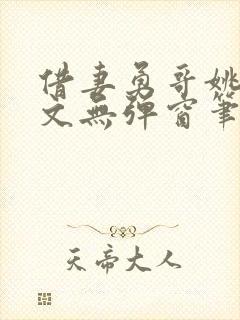 借妻勇哥姚
文無弹窗筆
天帝大人